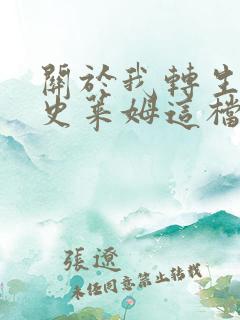 關於我轉生
史萊姆這檔
張遼
未經同意禁止轉載